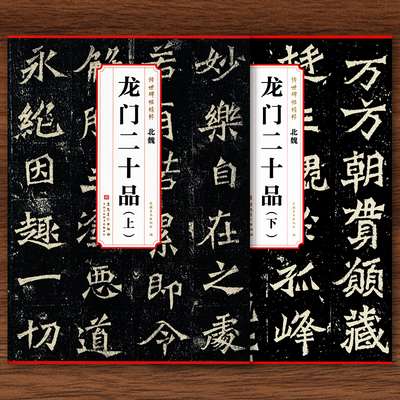 传世碑帖精粹
北魏
龙门二十品（上）
妙樂自在之處
若有結累即令
惡道
永絕因趣一切
传世碑帖精粹
北魏
龙门二十品（下）
万方朝貫願藏
孤峰